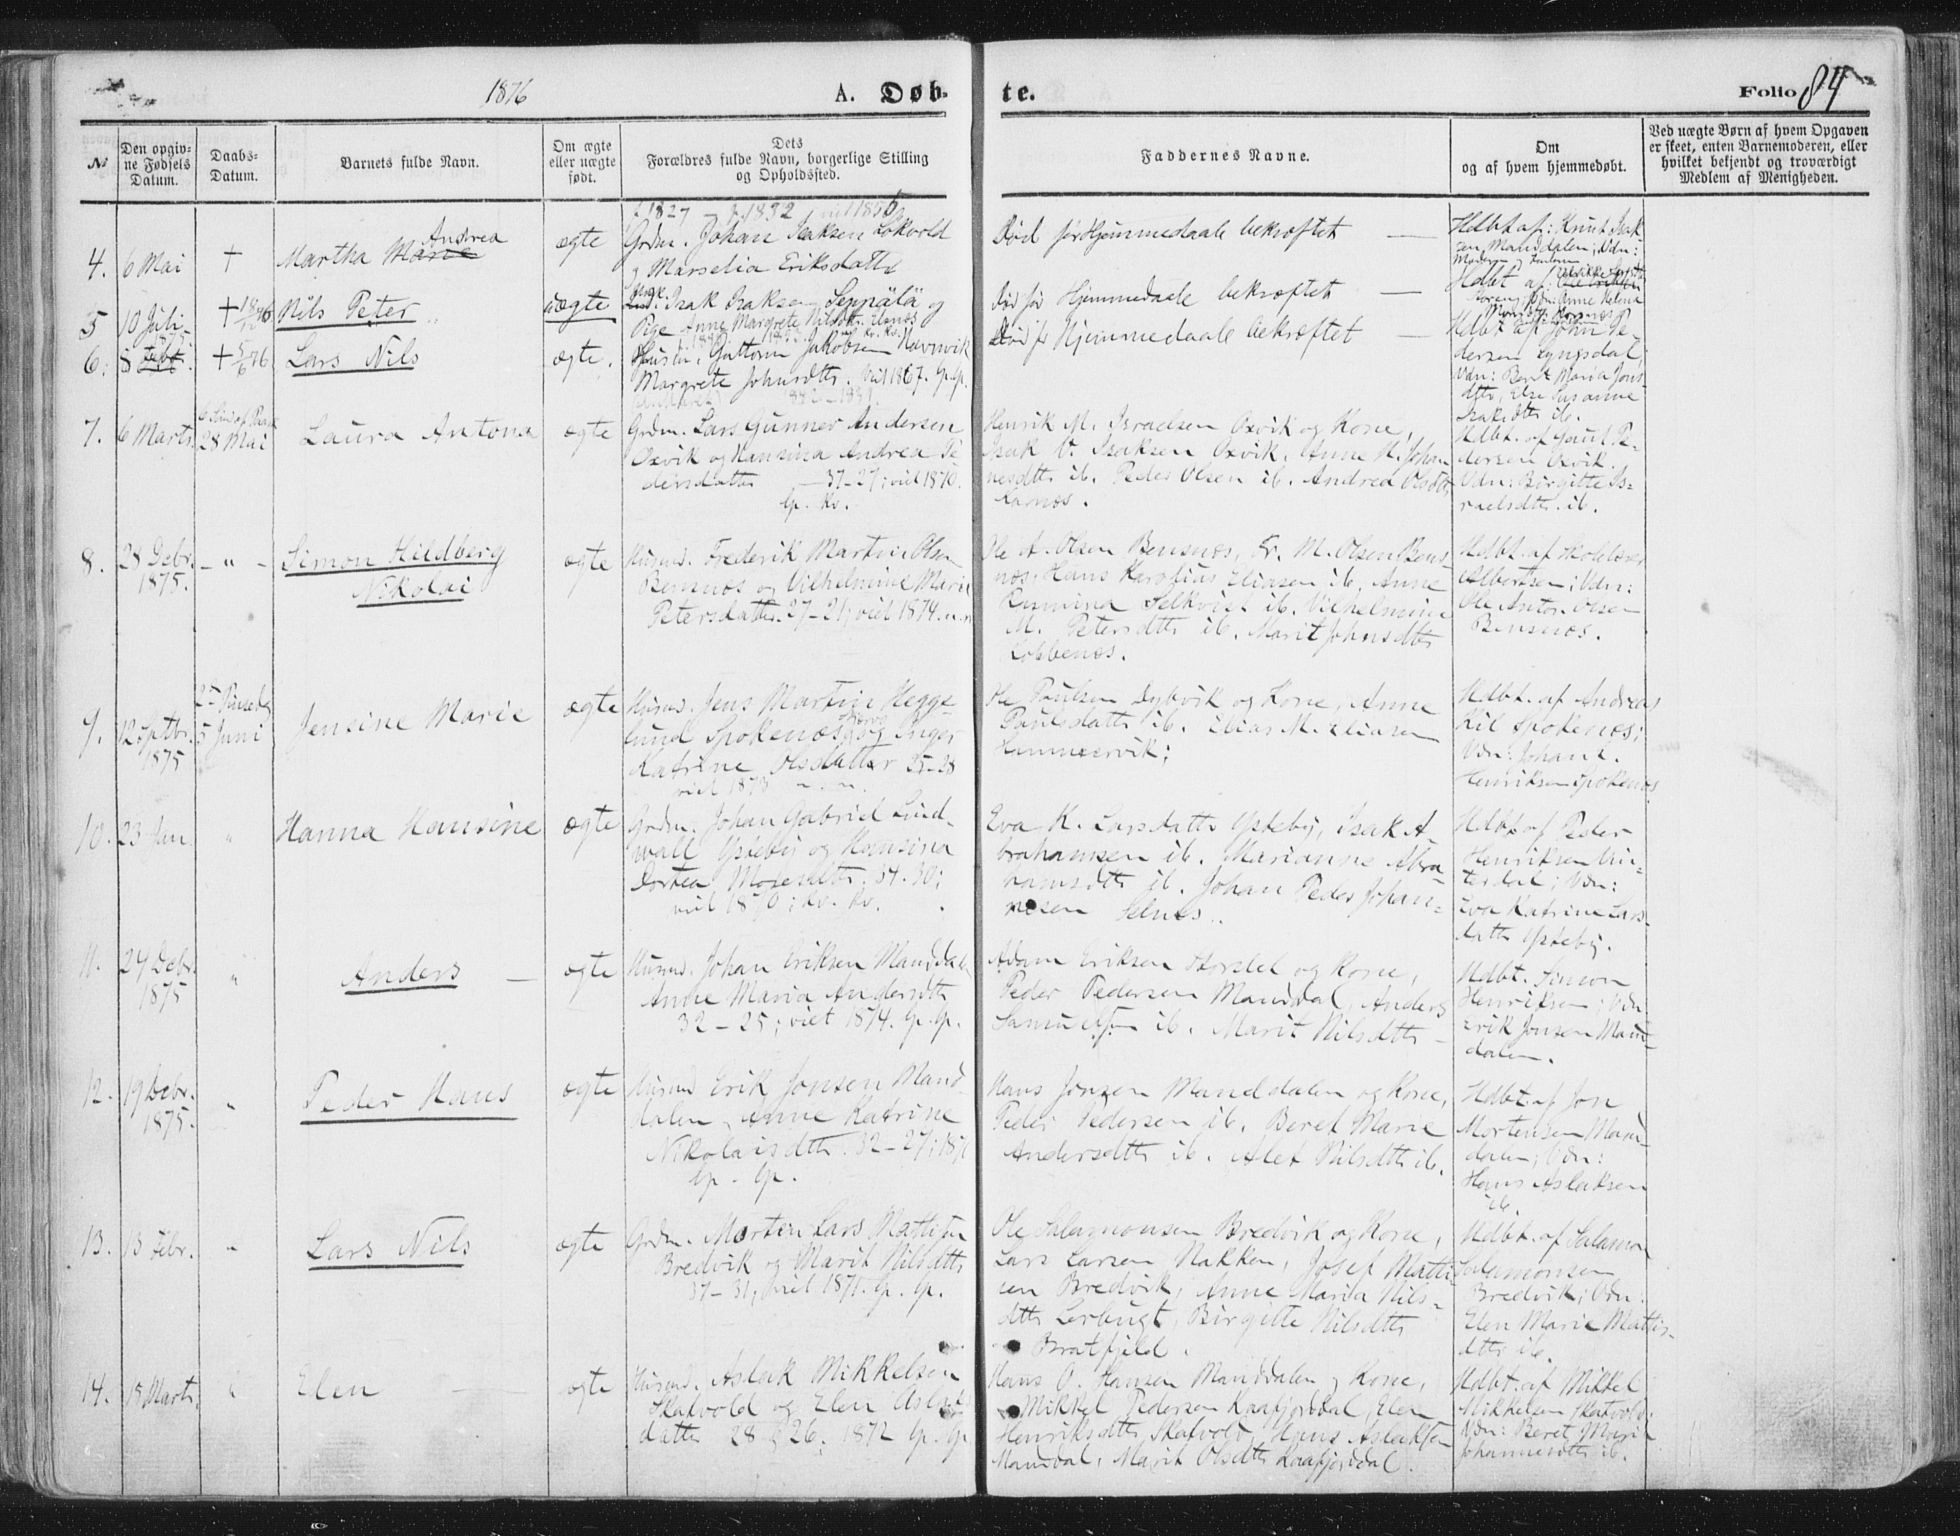 1876
A. Døb-
te.
Folio 84
№
Den opgiv-
ne Fødsels
Datum.
Daabs-
Datum.
Barnets fulde Navn.
Om ægte
eller uægte
født.
Dets
Forældres fulde Navn, borgerlige Stilling
og Opholdssted.
Faddernes Navne.
Om
og af hvem hjemmedøbt.
Ved uægte Børn af hvem Opgaven
er skeet, enten Barnemoderen, eller
hvilket bekjendt og troværdigt
Medlem af Menigheden.
4.
6 Mai
+
Andrea
Martha Marie
ægte
f. 1827 - f. 1832 viet 1856
Grdm. Johan Isaksen Løkvold
og Marselia Eriksdatt
Død før Hjemmedaab bekræftet
Hdbt. af: Knut Isak-
sen, Manddalen; Vdn:
5
10 Juli
+
Nils Peter
uægte
Isak Isaksen Seppälä og
Pige Anne Margrete Nilsdtt.
Død før Hjemmedaab bekræftet
Hdbt af
Vdn: Anne Helene
6.
8
+ 5/6 76
Lars Nils
ægte.
Guttorm Jakobsen Navnvik
Margrete Johnsdtr. viet 1867. Lp. Lp.
Død før Hjemmedaab bekræftet
Hdbt af John Pe-
dersen Lyngsdal;
Vdn: Beret Maria Jons
dtr, Else Susanne
Isaksdtr ib.
7.
6 Marts
28 Mai
Laura Antona
ægte
Grdm. Lars Gunner Andersen
Oxvik og Hansina Andrea Pe
dersdatter - 37-27; viet 1870.
Lp. Kv.
Henrik M. Israelsen Oxvik og Kone,
Isak O. Isaksen Oxvik, Anne M. Johan
nesdtr ib. Peder Olsen ib. Andrea Olsdtr
Aarnæs.
Hdbt. af Poul Pe-
dersen Oxvik.
Vdn: Birgitte Is-
raelsdtr. ib.
8.
28 Debr.
1875.
- " -
Simon Hildberg
Nikolai
ægte
Husmd. Frederik Martin Olsen
Bensnæs og Vilhelmine Marie
Petersdatter. 27-21; viet 1874. n. n
Ole A. Olsen Bensnæs, Fr. M. Olsen Bens
næs, Hans Karolius Eliasen ib. Anne
Rumina Selkvist ib. Vilhelmine
M. Petersdtr ib. Marit Johnsdtr
Løkbenæs.
Hdbt. af Skolelærer
Albertsen; Vdn:
Ole Anton Olsen
Bensnæs.
9.
12 Sptbr.
1875
2den Pinsedag
5 Juni
Jensine Marie
ægte
Husmd. Jens Martin Hegge
lund Spokenæs og Inger
Katrine Olsdatter 25-28
viet 1873 n. n.
Ole Paulsen Dybvik og Kone, Anne
Paulsdatter ib. Elias M. Eliasen
Hammervik;
Hdbt. af Andreas
Kil Spokenæs;
Vdn: Johan E.
Henriksen Spokenæs
10.
23 Jan
"
Hanna Hansine
ægte
Grdm. Johan Gabriel Lind-
wall Ysteby og Hansina
Dortea Mosesdtr. 34-30;
viet 1870; Kv. Kv.
Eva K. Larsdatter Ysteby, Isak A-
brahamsen ib. Marianne Abra
hamsdtr ib. Johan Peder Johan-
nesen Selnes.
Hdbt af Peder
Henriksen Vin-
terdal; Vdn:
Eva Katrine Lars-
datter Ysteby.
11.
24 Debr.
1875
"
Anders
ægte
Husmd. Johan Eriksen Manddalen
Anne Maria Andersdtr
32-25; viet 1874. Lp. Lp.
Adam Eriksen Storslet og Kone,
Peder Pedersen Manddal, Anders
Samuelsen ib. Marit Nilsdtr
Hdbt. Simon
Henriksen; Vdn
Erik Jonsen Mand-
dalen.
12.
19 Debr.
1875.
"
Peder Hans
ægte
Husmd Erik Jonsen Mand
dalen, Anne Katrine
Nikolaisdtr. 32-27; 187
Lp. Lp.
Hans Jonsen Manddalen og Kone,
Peder Pedersen ib. Beret Marie
Andersdtr ib. Alet Nilsdtr ib.
Hdbt. af Jon
Mortensen Mand-
dalen; Vdn:
Hans Aslaksen
ib.
13.
13 Febr.
"
Lars Nils
ægte
Grdm. Morten Lars Mattisen
Bredvik og Marit Nilsdtr
37-31, viet 1871. Lp. Lp.
Ole Salamonsen Bredvik og Kone,
Lars Larsen Nakken, Josef Matti
sen Bredvik, Anne Maria Nils-
dtr Lerbugt, Birgitte Nilsdtr
Bratfjeld.
Hdbt. af Salamon
Salamonsen
Bredvik; Vdn:
Elen Marie Mattis-
dtr ib.
14.
15 Marts.
"
Elen
ægte
Husmd. Aslak Mikkelsen
Skatvold og Elen Aslaks
datter 28 & 26. 1872 Lp. Lp
Hans O. Hansen Manddalen og Kone,
Mikkel Pedersen Kaafjorddal, Elen
Henriksdtr Skatvold, Hans Aslaksen
Manddal, Marit Olsdtr Kaafjorddal.
Hdbt. af Mikkel
Mikkelsen Skatvold;
Vdn: Beret Maria
Johannesdtr ib.